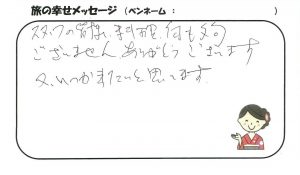 旅の幸せメッセージ （ペンネーム： ）
スタッフの皆様、料理、何も文句
ございません ありがとうございます
又、いつか来たいと思ってます。